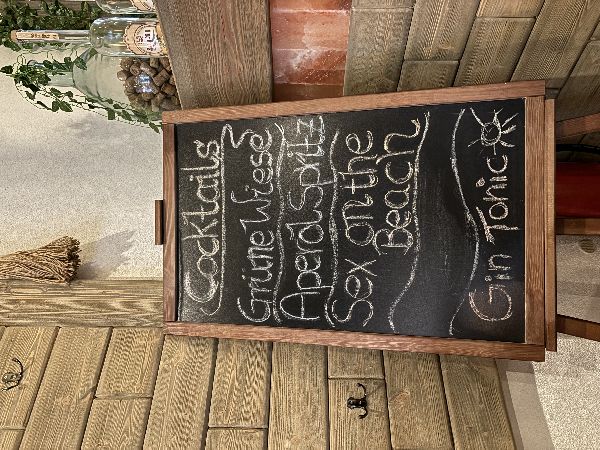 Cocktails
Grüne Wiese
Aperol Spritz
Sex on the
Beach
Gin Tonic